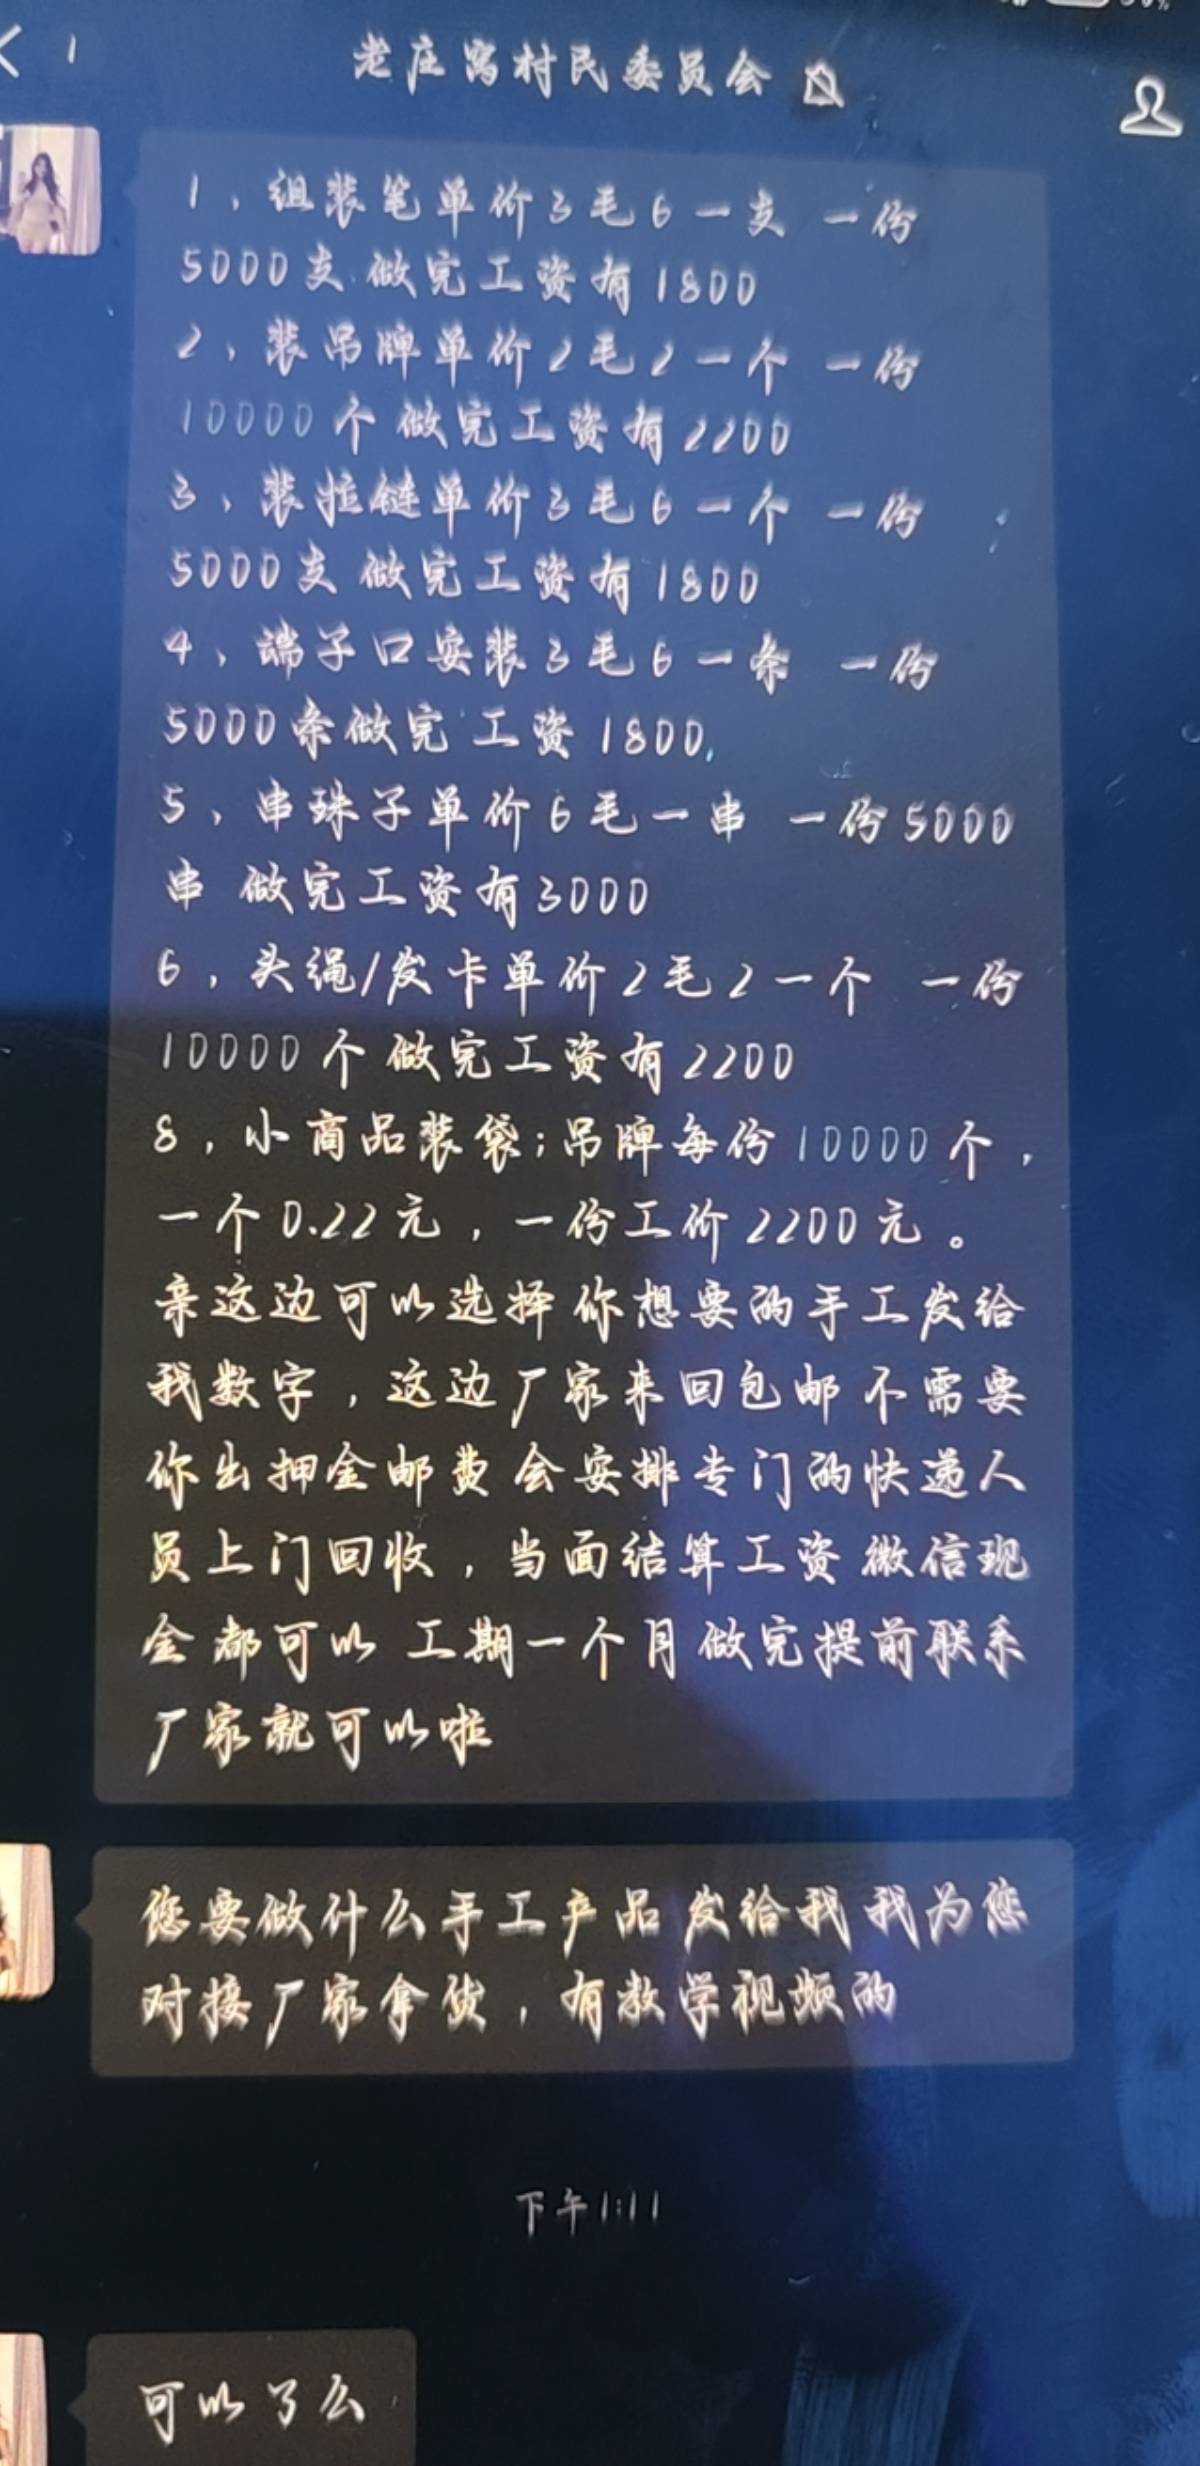 老庄窝村民委员会
1、组装笔单价3毛6一支 一份
5000支.做完工资有1800
2、装吊牌单价2毛2一个 一份
10000个 做完工资有2200
3、装拉链单价3毛6一个 一份
5000支 做完工资有1800
4、端子口安装3毛6一条 一份
5000条做完 工资 1800,
5、串珠子单价6毛一串 一份5000
串 做完工资有3000
6，头绳/发卡单价2毛2一个 一份
10000个 做完工资有2200
8，小商品装袋；吊牌每份10000个，
一个0.22元，一份工价2200元。
亲这边可以选择你想要的手工发给
我数字，这边厂家来回包邮 不需要
你出押金邮费会安排专门的快递人
员上门回收，当面结算工资 微信现
金都可以 工期一个月做完提前联系
厂家就可以啦
您要做什么手工产品 发给我 我为您
对接厂家拿货，有教学视频的
下午1:11
可以了么